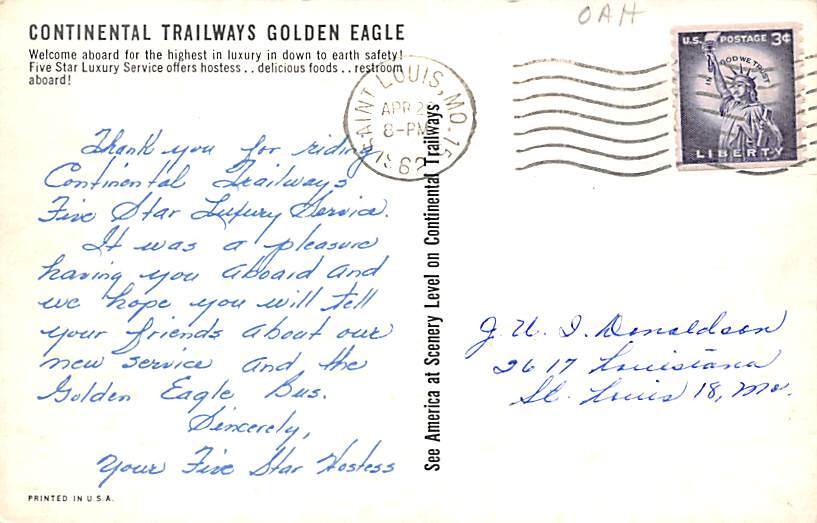 CONTINENTAL TRAILWAYS GOLDEN EAGLE
Welcome aboard for the highest in luxury in down to earth safety!
Five Star Luxury Service offers hostess . . delicious foods . . restroom
aboard!
OAH
U.S. POSTAGE 3¢
IN GOD WE TRUST
LIBERTY
SAINT LOUIS, MO.
APR 2
8-PM
1962
Thank you for riding
Continental Trailways
Five Star Luxury Service.
It was a pleasure
having you aboard and
we hope you will tell
your friends about our
new service and the
Golden Eagle Bus.
Sincerely,
Your Five Star Hostess
See America at Scenery Level on Continental Trailways
Donaldson
2617 Louisiana
St. Louis 18, Mo.
PRINTED IN U.S.A.